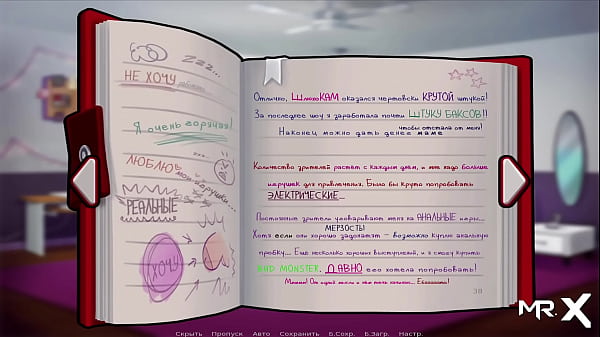 Zzz...
НЕ ХОЧУ
Я очень горячая!
ЛЮБЛЮ
мои игрушки...
РЕАЛЬНЫЕ
ХОЧУ
Отлично, ШлюхоКАМ оказался чертовски КРУТОЙ штукой!
За последнее шоу я заработала почти ШТУКУ БАКСОВ!!
чтобы отстала от меня!
Наконец можно дать денег маме
Количество зрителей растёт с каждым днём, и мне надо больше
игрушек для привлечения. Было бы круто попробовать
ЭЛЕКТРИЧЕСКИЕ...
Постоянные зрители уговаривают меня на АНАЛЬНЫЕ игры...
МЕРЗОСТЬ!
Хотя если они хорошо задонатят - возможно куплю анальную
пробку... Ещё несколько хороших выступлений, и я смогу купить
MAD MONSTER. ДАВНО его хотела попробовать!
38
Скрыть Пропуск Авто Сохранить Б.Сохр. Б.Загр. Настр.
MR.X